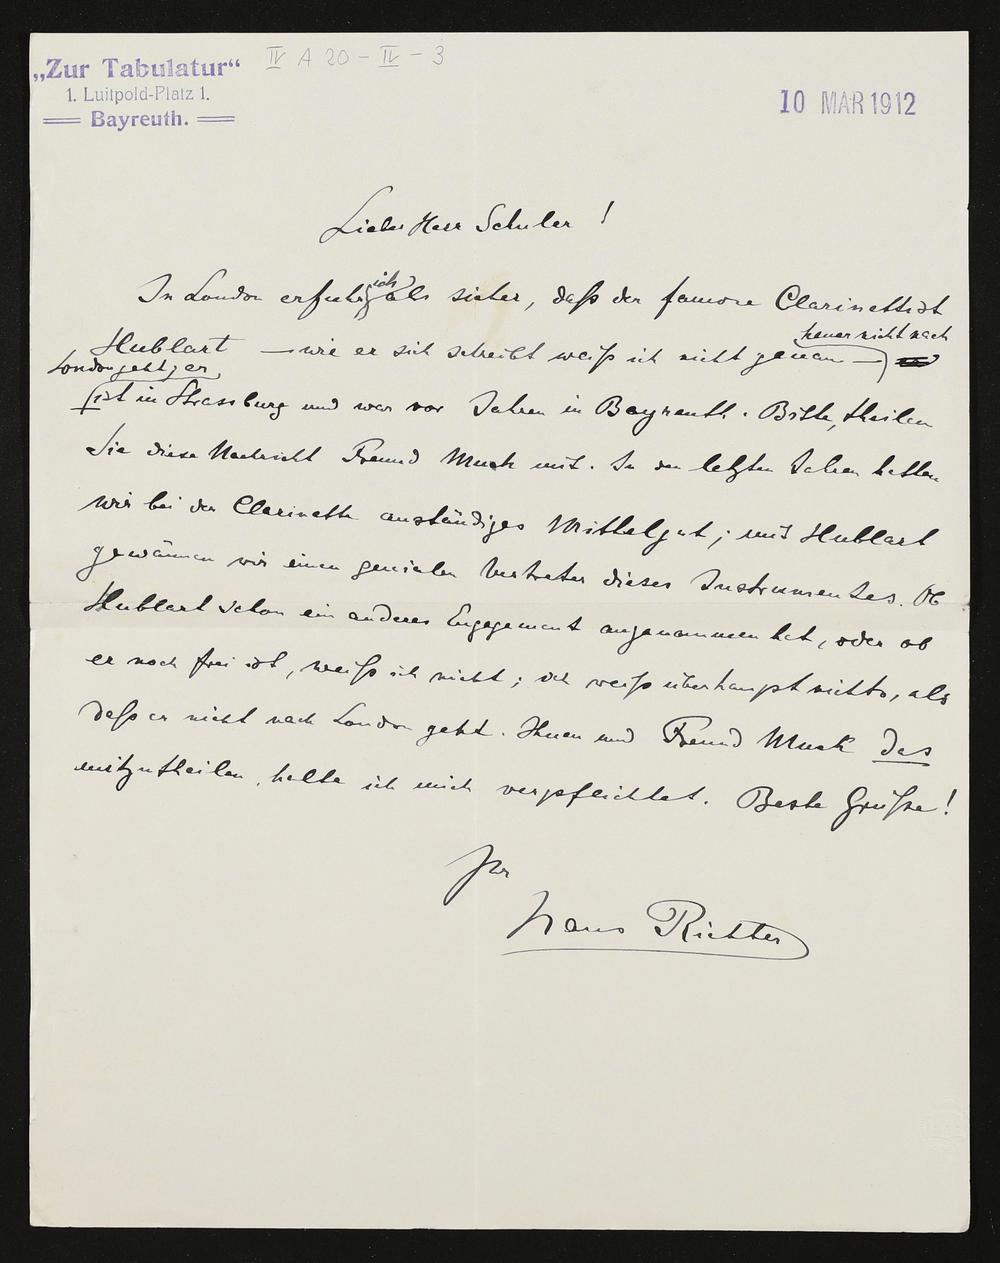 „Zur Tabulatur“
1. Luitpold-Platz 1.
Bayreuth.
IV A 20 - IV - 3
10 MAR 1912
Lieber Herr Schuler!
In London erfuhr ich als sicher, daß der famose Clarinettist
Hublart — wie er sich schreibt weiß ich nicht genau — heuer nicht nach
London geht; er
ist in Strassburg und war vor Jahren in Bayreuth. Bitte, theilen
Sie diese Nachricht Freund Muck mit. In den letzten Jahren hatten
wir bei der Clarinette anständiges Mittelgut; mit Hublart
gewännen wir einen genialen Vertreter dieses Instrumentes. Ob
Hublart schon ein anderes Engagement angenommen hat, oder ob
er noch frei ist, weiß ich nicht; ich weiß überhaupt nichts, als
daß er nicht nach London geht. Ihnen und Freund Muck das
mitzutheilen, halte ich mich verpflichtet. Beste Grüße!
Ihr
Hans Richter